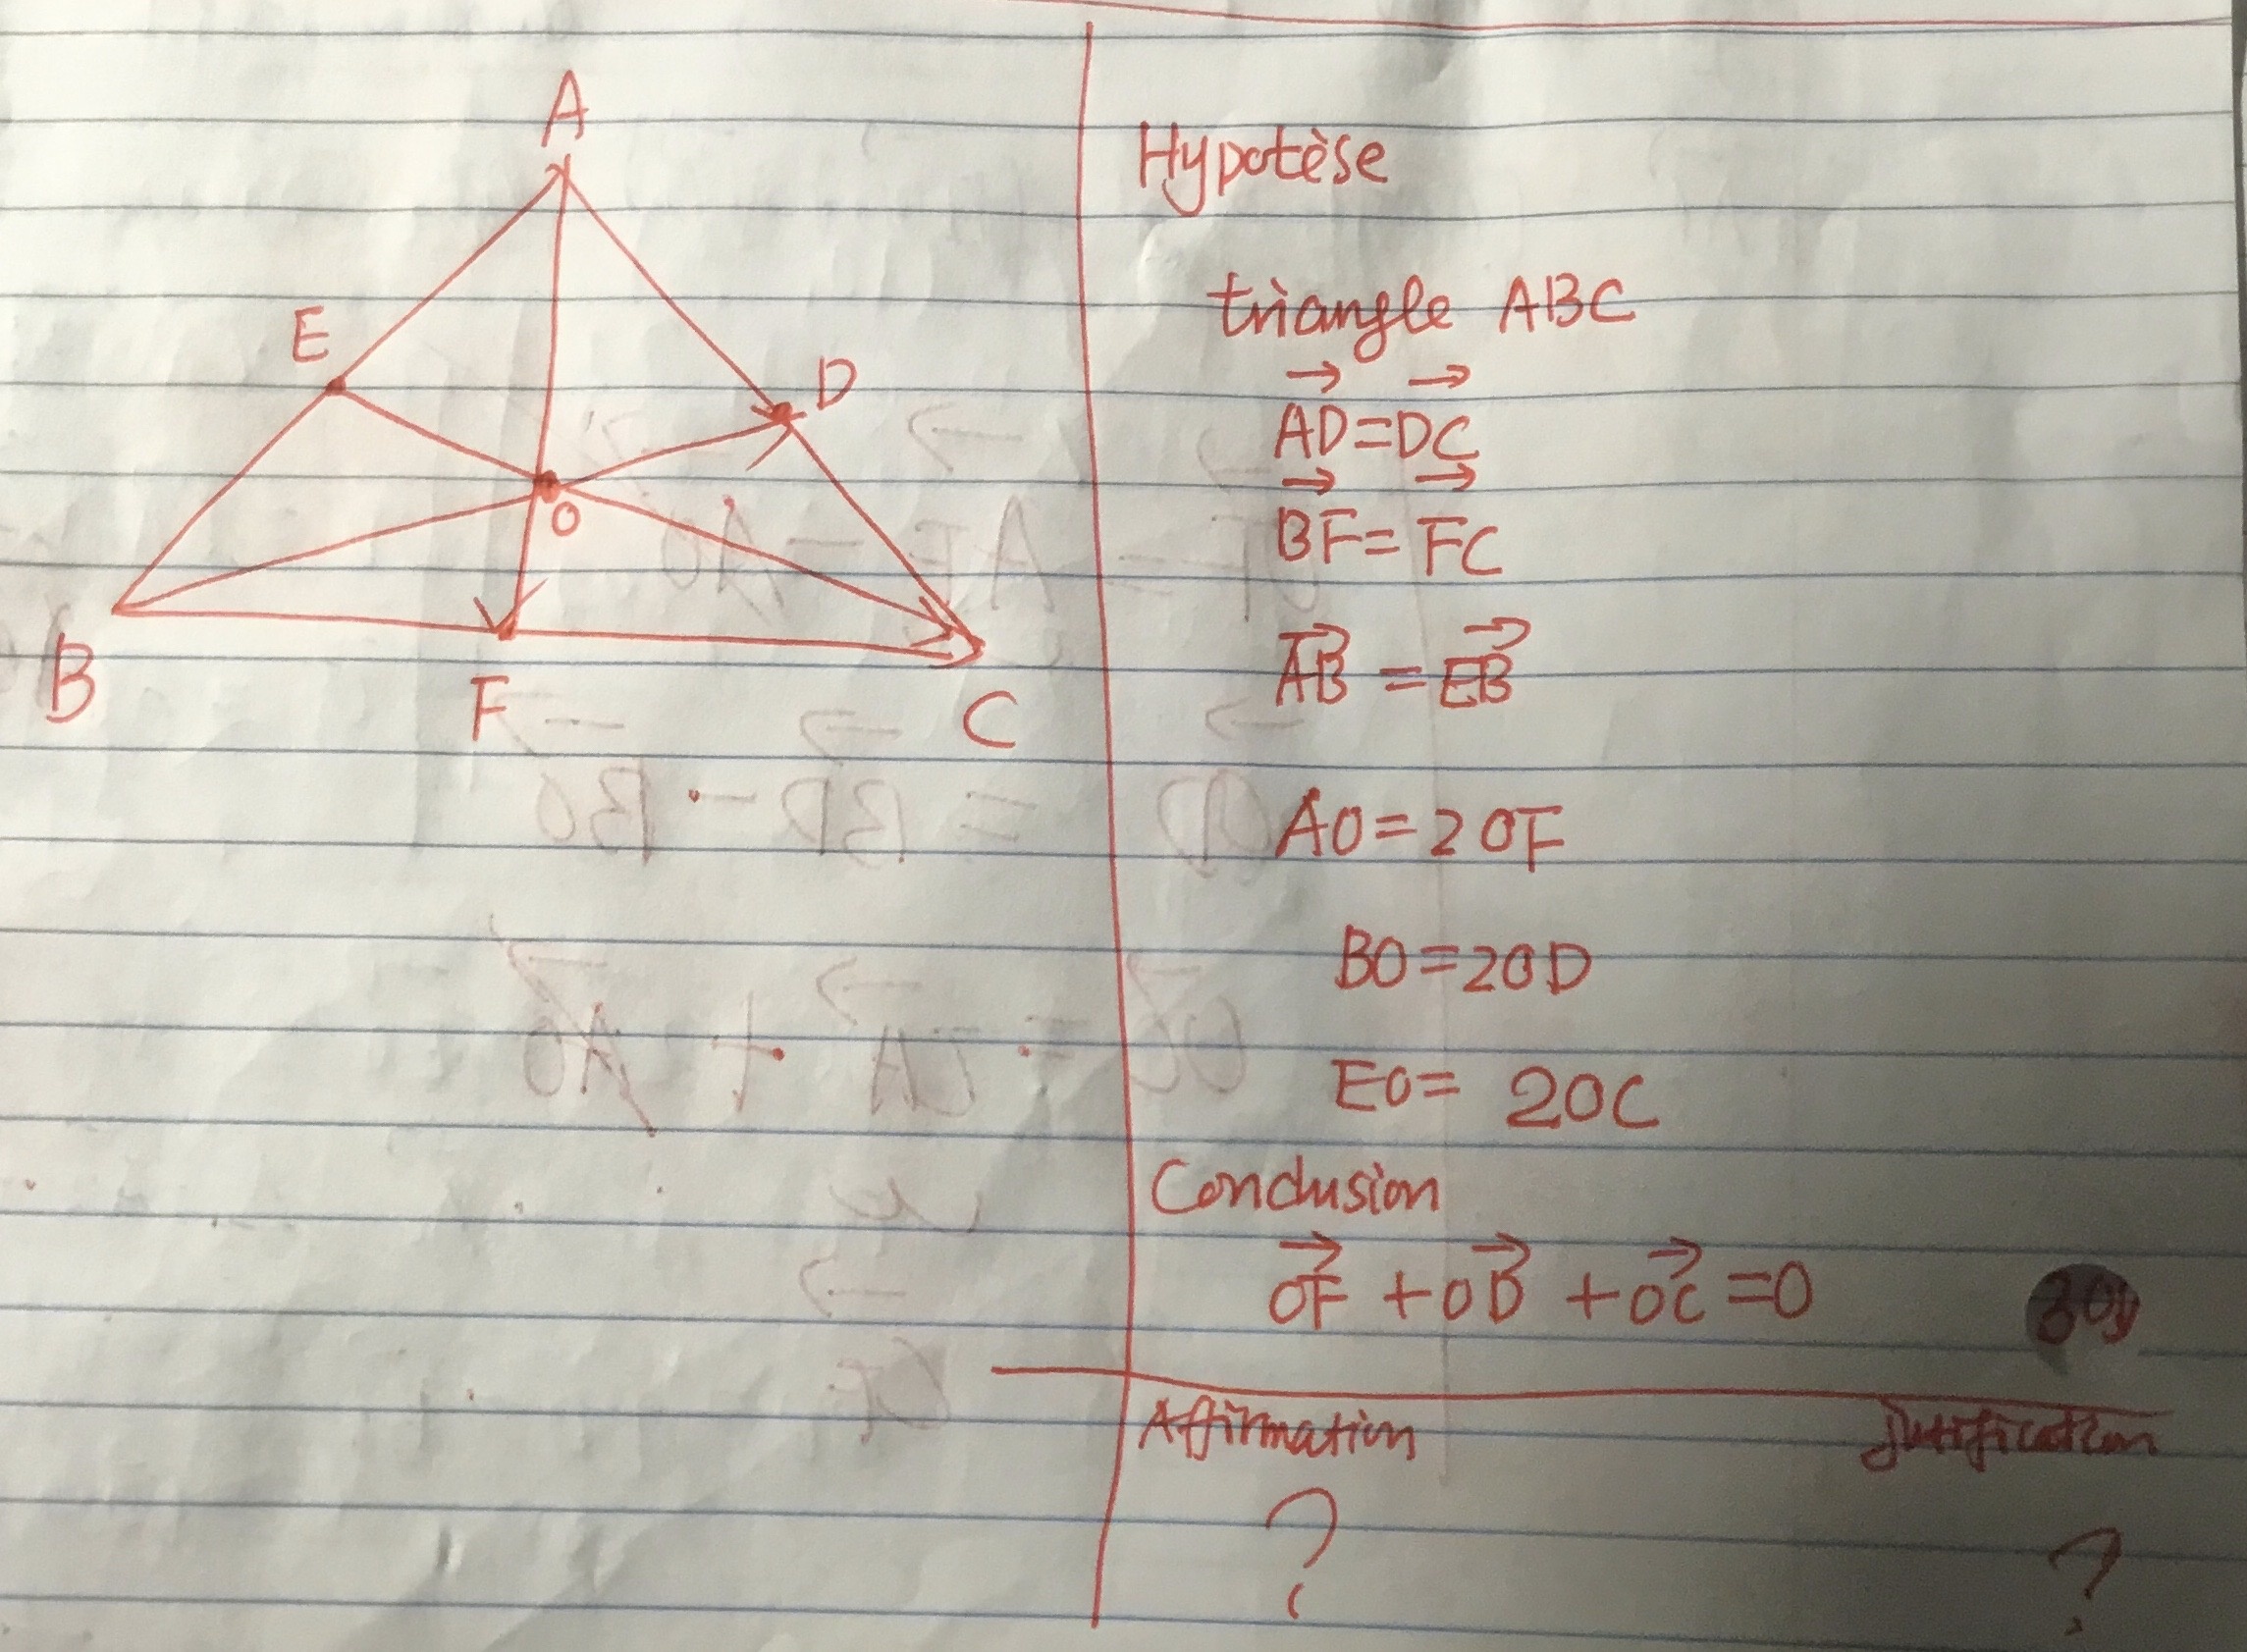 A
E
D
O
B
F
C
Hypotèse
triangle ABC
AD=DC
BF=FC
AB=EB
AO=2OF
BO=2OD
EO=2OC
Conclusion
OF+OD+OC=0
Affirmation
Justification
?
?